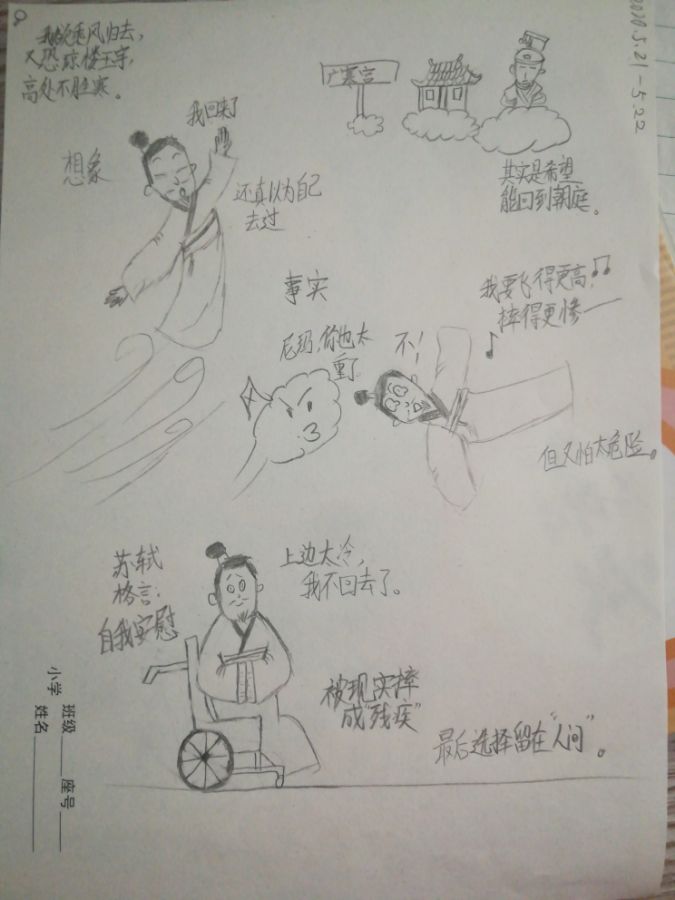 我欲乘风归去,
又恐琼楼玉宇,
高处不胜寒。
2020.5.21-5.22
广寒宫
我回来了
想象
还真以为自己
去过
其实是希望
能回到朝庭。
事实
我要飞得更高,
摔得更惨一
尼玛,你也太
重了
不!
但又怕太危险。
苏轼
格言:
自我安慰
上边太冷,
我不回去了。
被现实摔
成"残疾"
最后选择留在"人间"。
小学 班级 座号
姓名